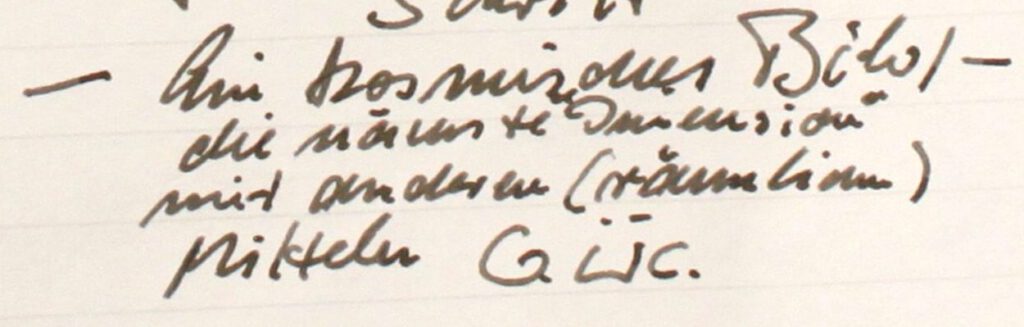 Schritt
— Ein kosmisches Bild —
die nächste "Dimension"
mit anderen (räumlichen)
Mitteln G. Üc.